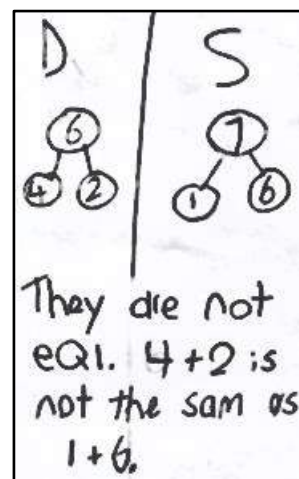 D S
6 7
4 2 1 6
They are not
eQl. 4+2 is
not the sam as
1+6.